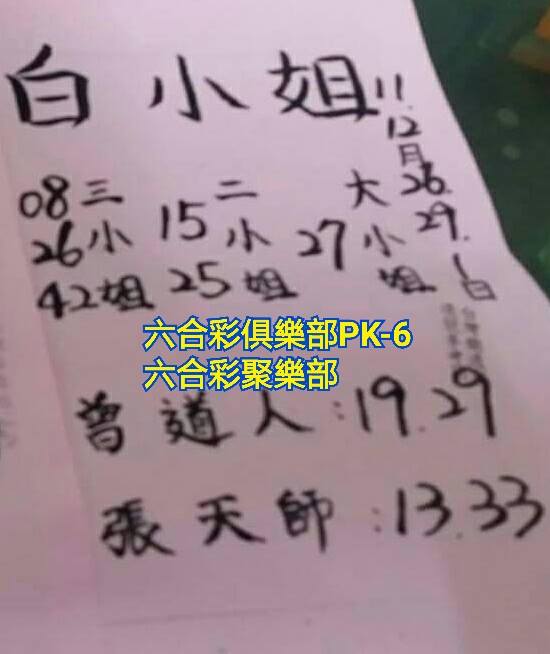 白小姐!!
12月26.29.1日
08三 15二 大
26小 小 27小
42姐 25姐 姐
六合彩俱樂部PK-6
六合彩聚樂部
曾道人:19.29
張天師:13.33